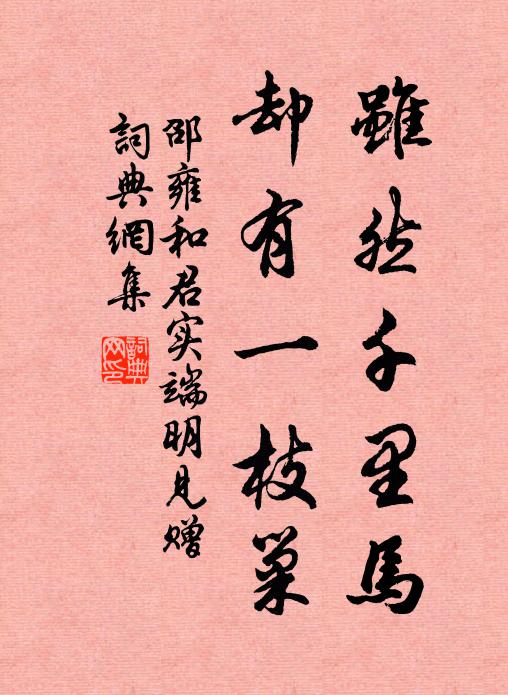 雖然千里馬
却有一枝巢
邵雍和君实端明見赠
詞典網集
詞典
网印